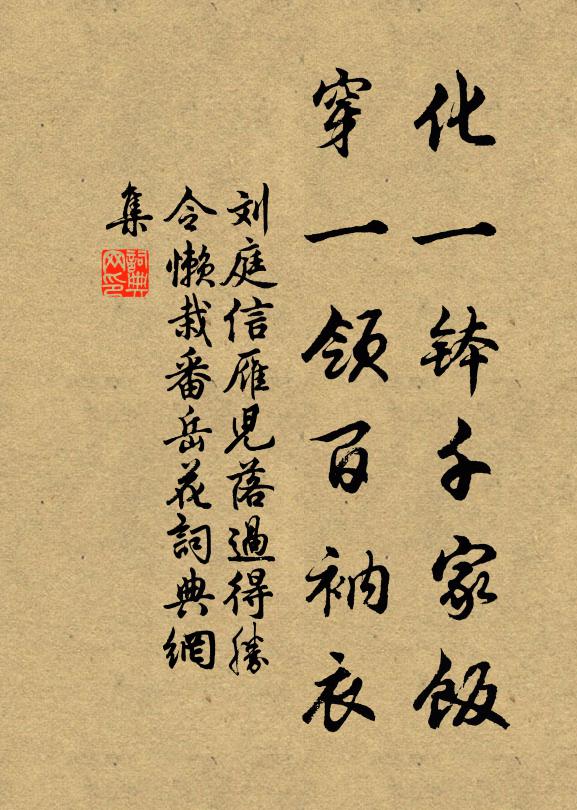 化一钵千家饭
穿一领百衲衣
刘庭信雁儿落過得勝
令懒栽番岳花詞典網
集
詞典网印